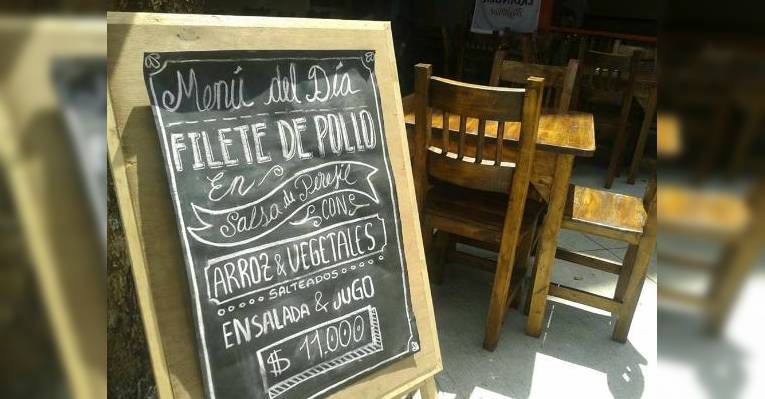 Menú del Día
FILETE DE POLLO
En
Salsa de Perejil
CON
ARROZ & VEGETALES
SALTEADOS
ENSALADA & JUGO
$ 11.000